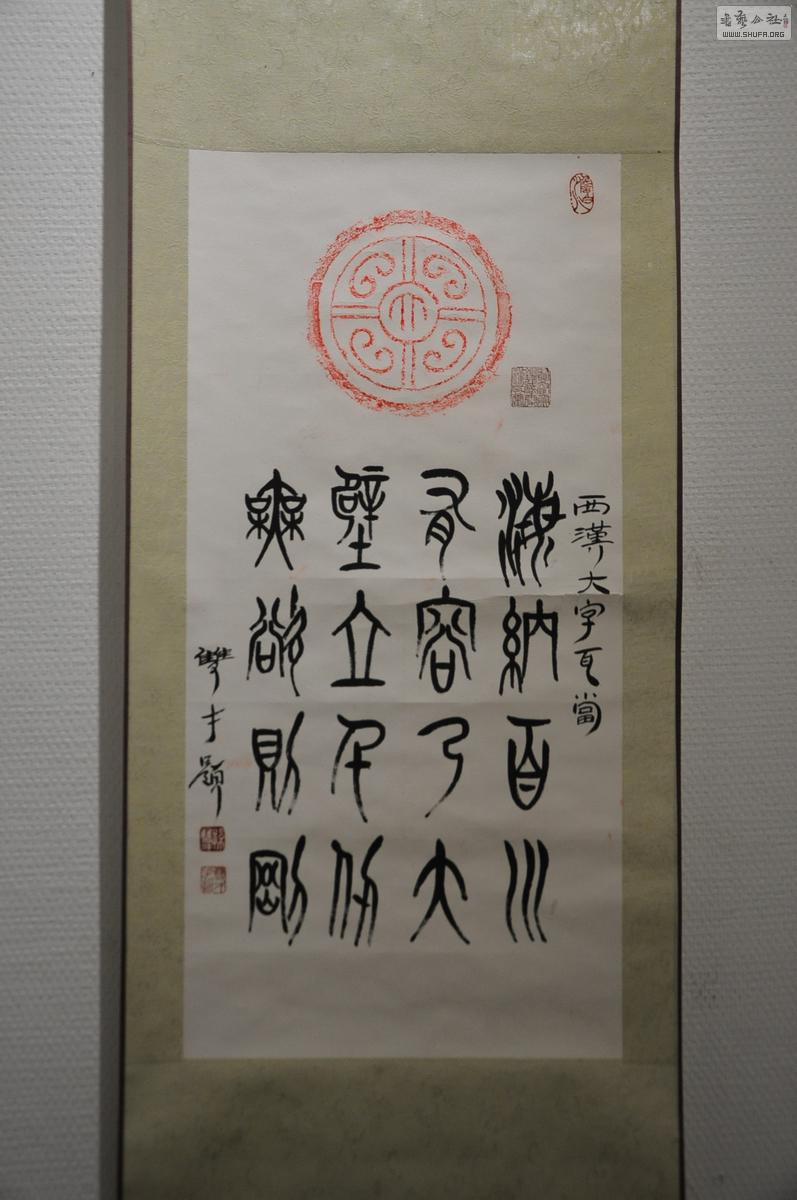 書藝公社
WWW.SHUFA.ORG
西漢大字瓦當
海納百川
有容乃大
壁立千仞
無欲則剛
雙才題